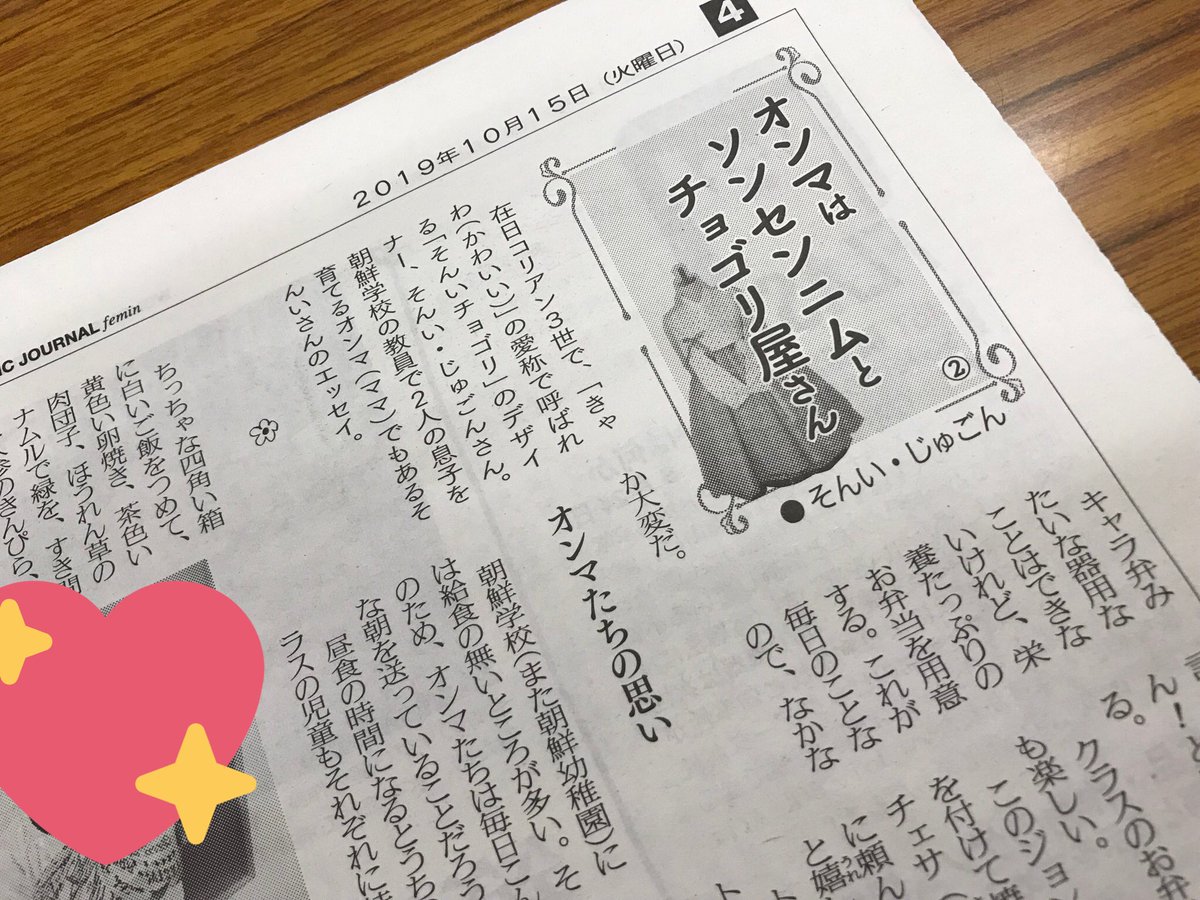 4
2019年10月15日(火曜日)
IC JOURNAL femin
オンマは
ソンセンニムと
チョゴリ屋さん
②
●そんい・じゅごん
在日コリアン3世で、「きゃ
わ(かわいい)」の愛称で呼ばれ
る「そんいチョゴリ」のデザイ
ナー、そんい・じゅごんさん。
朝鮮学校の教員で2人の息子を
育てるオンマ(ママ)でもあるそ
んいさんのエッセイ。
ちっちゃな四角い箱
に白いご飯をつめて、
黄色い卵焼き、茶色い
肉団子、ほうれん草の
ナムルで緑を、すき間
参のきんぴら、
キャラ弁み
たいな器用な
ことはできな
いけれど、栄
養たっぷりの
お弁当を用意
する。これが
毎日のことな
ので、なかな
か大変だ。
オンマたちの思い
朝鮮学校(また朝鮮幼稚園)に
は給食の無いところが多い。そ
のため、オンマたちは毎日こん
な朝を送っていることだろう
昼食の時間になるとうち
ラスの児童もそれぞれに
ん!と
る。
クラスのお弁
も楽しい。
このジョン
を付けて
チェサ
に頼ん
と嬉